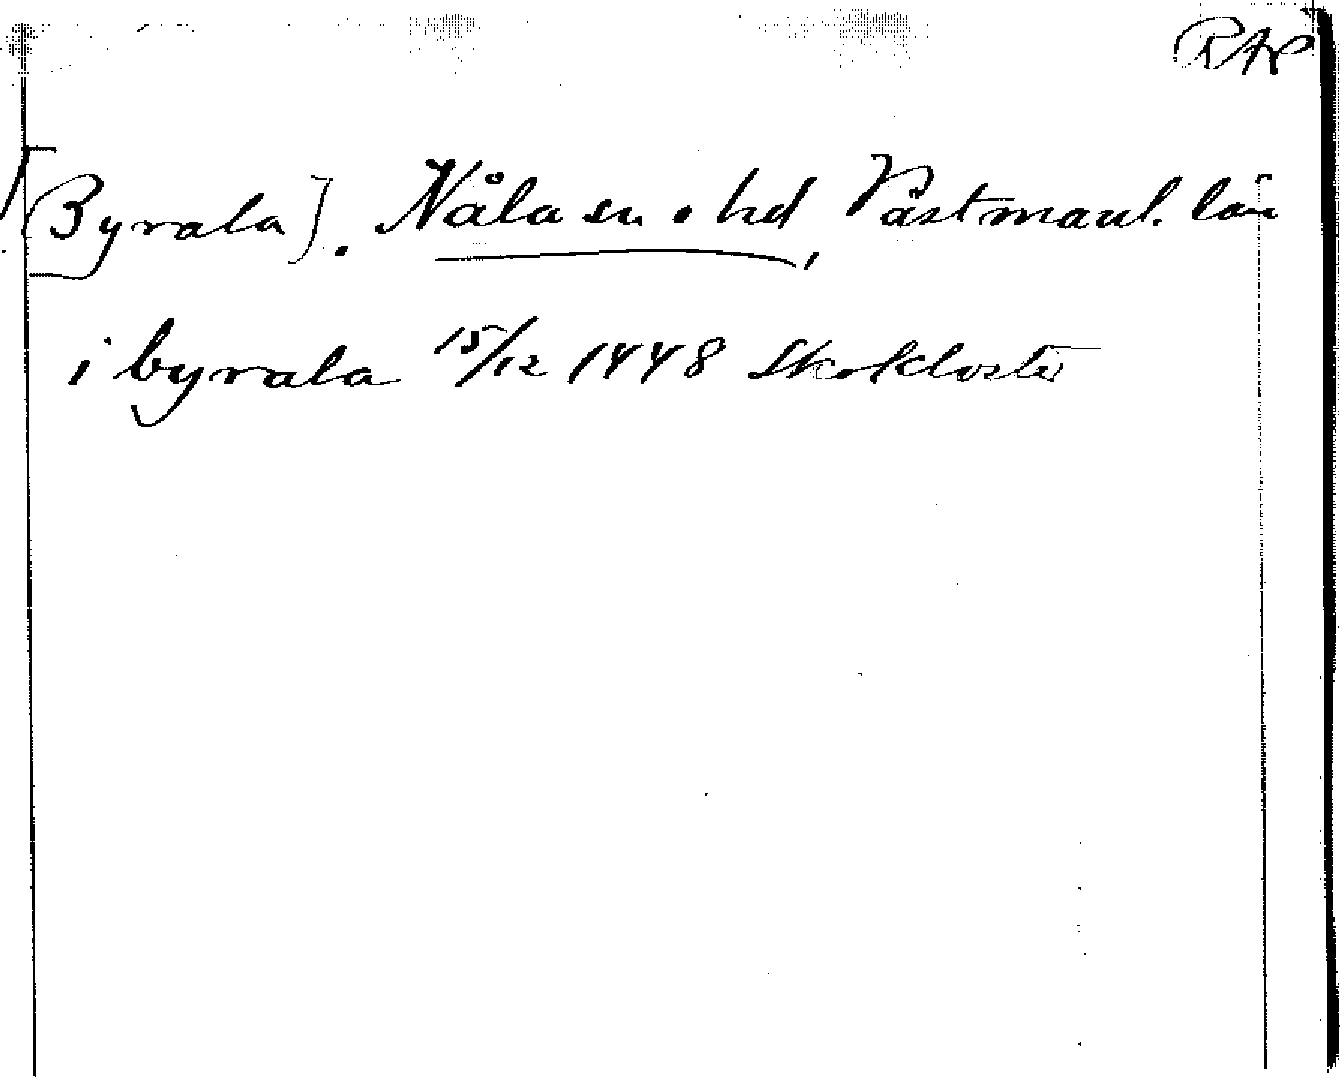 RAP
[Byrala]. Nåla sn. o hd, Västmanl. län
i byrala 15/12 1448 Skokloster